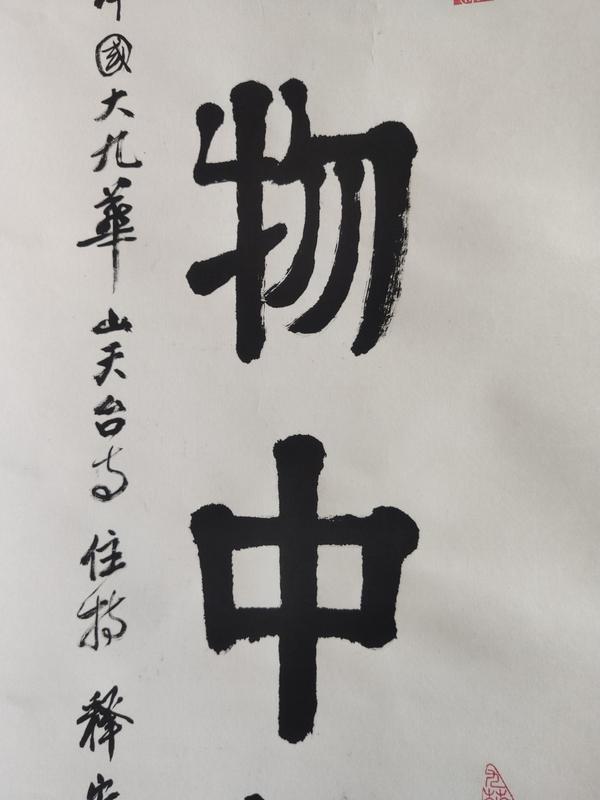 物中
中國大九華山天台寺住持釋宏